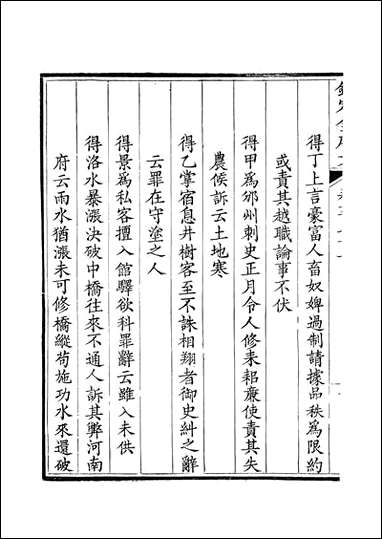 得丁上言豪富人畜奴婢過制請據品秩為限約
或責其越職論事不伏
得甲為邠州刺史正月令人修耒耜廉使責其失
農候訴云土地寒
得乙掌宿息井樹客至不誅相翔者御史糾之辭
云罪在守塗之人
得景為私客擅入館驛欲科罪辭云雖入未供
得洛水暴漲決破中橋往來不通人訴其弊河南
府云雨水猶漲未可修橋縱苟施功水來還破